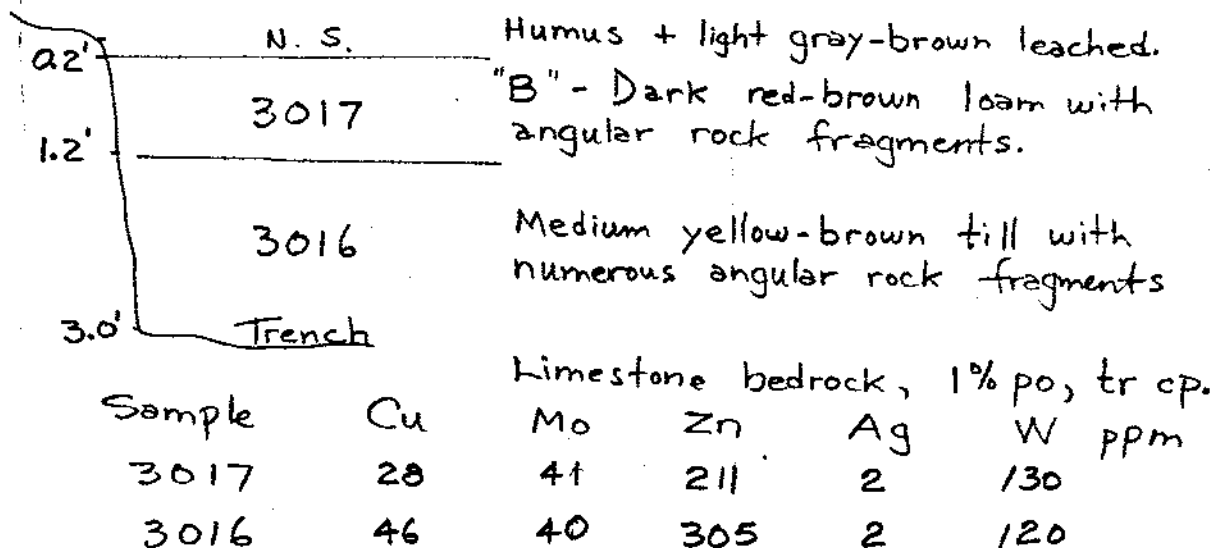 N. S. Humus + light gray-brown leached.
0.2'
"B" - Dark red-brown loam with
3017 angular rock fragments.
1.2'
3016 Medium yellow-brown till with
numerous angular rock fragments
3.0' Trench
Limestone bedrock, 1% po, tr cp.
Sample Cu Mo Zn Ag W ppm
3017 28 41 211 2 130
3016 46 40 305 2 120